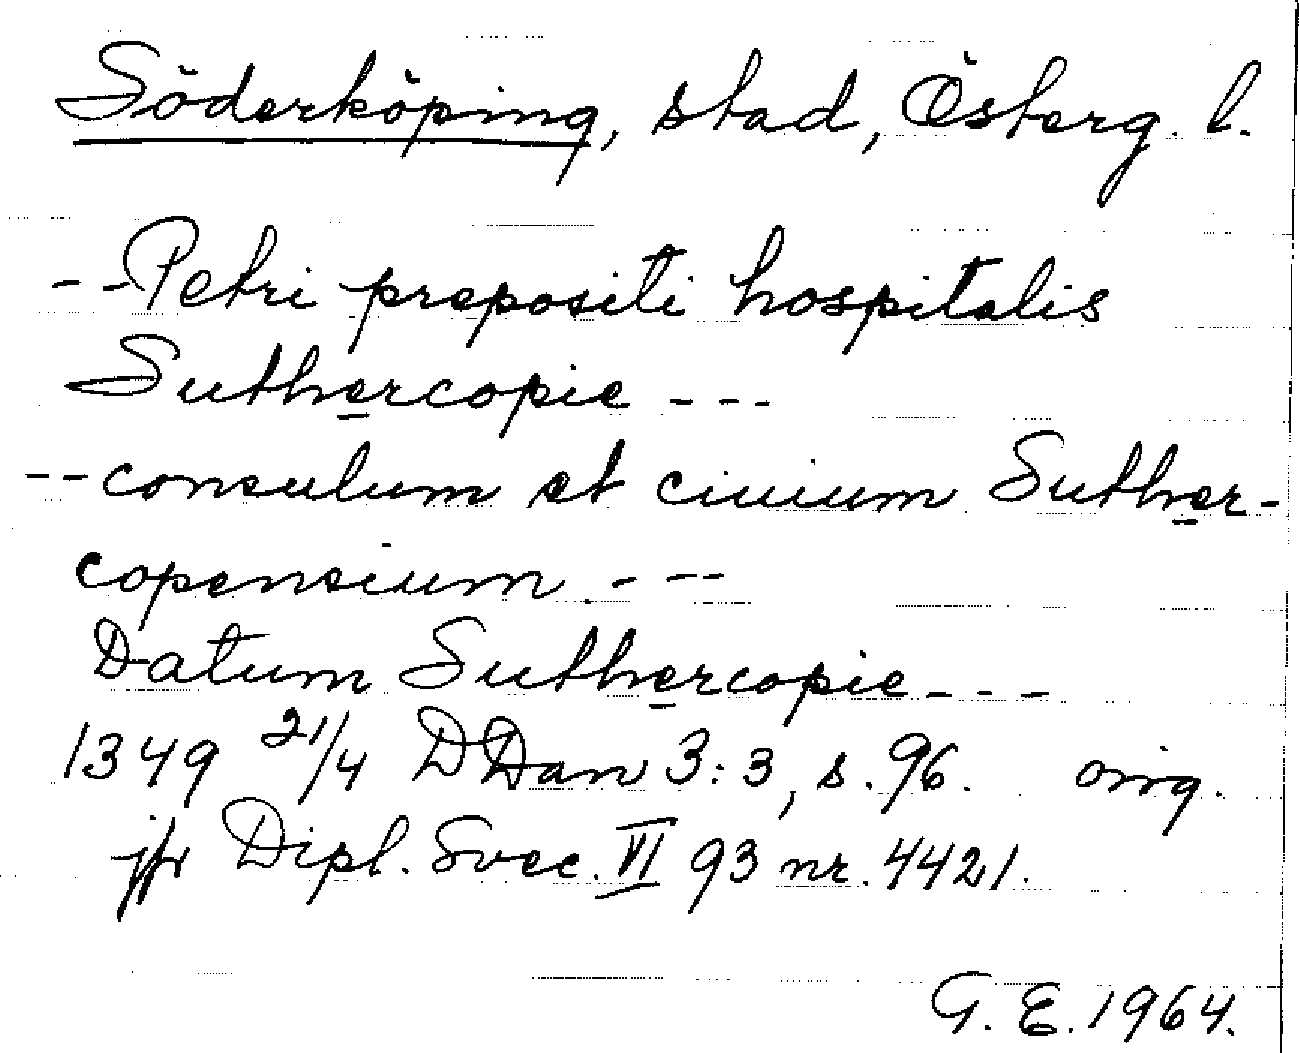 Söderköping, stad, Österg. l.
-- Petri prepositi hospitalis
Suthercopie ---
-- consulum et ciuium Suther-
copensium. ---
Datum Suthercopie ---
1349 21/4 DDan 3:3, s. 96. orig.
jfr Dipl. Svec. VI 93 nr. 4421.
G. E. 1964.